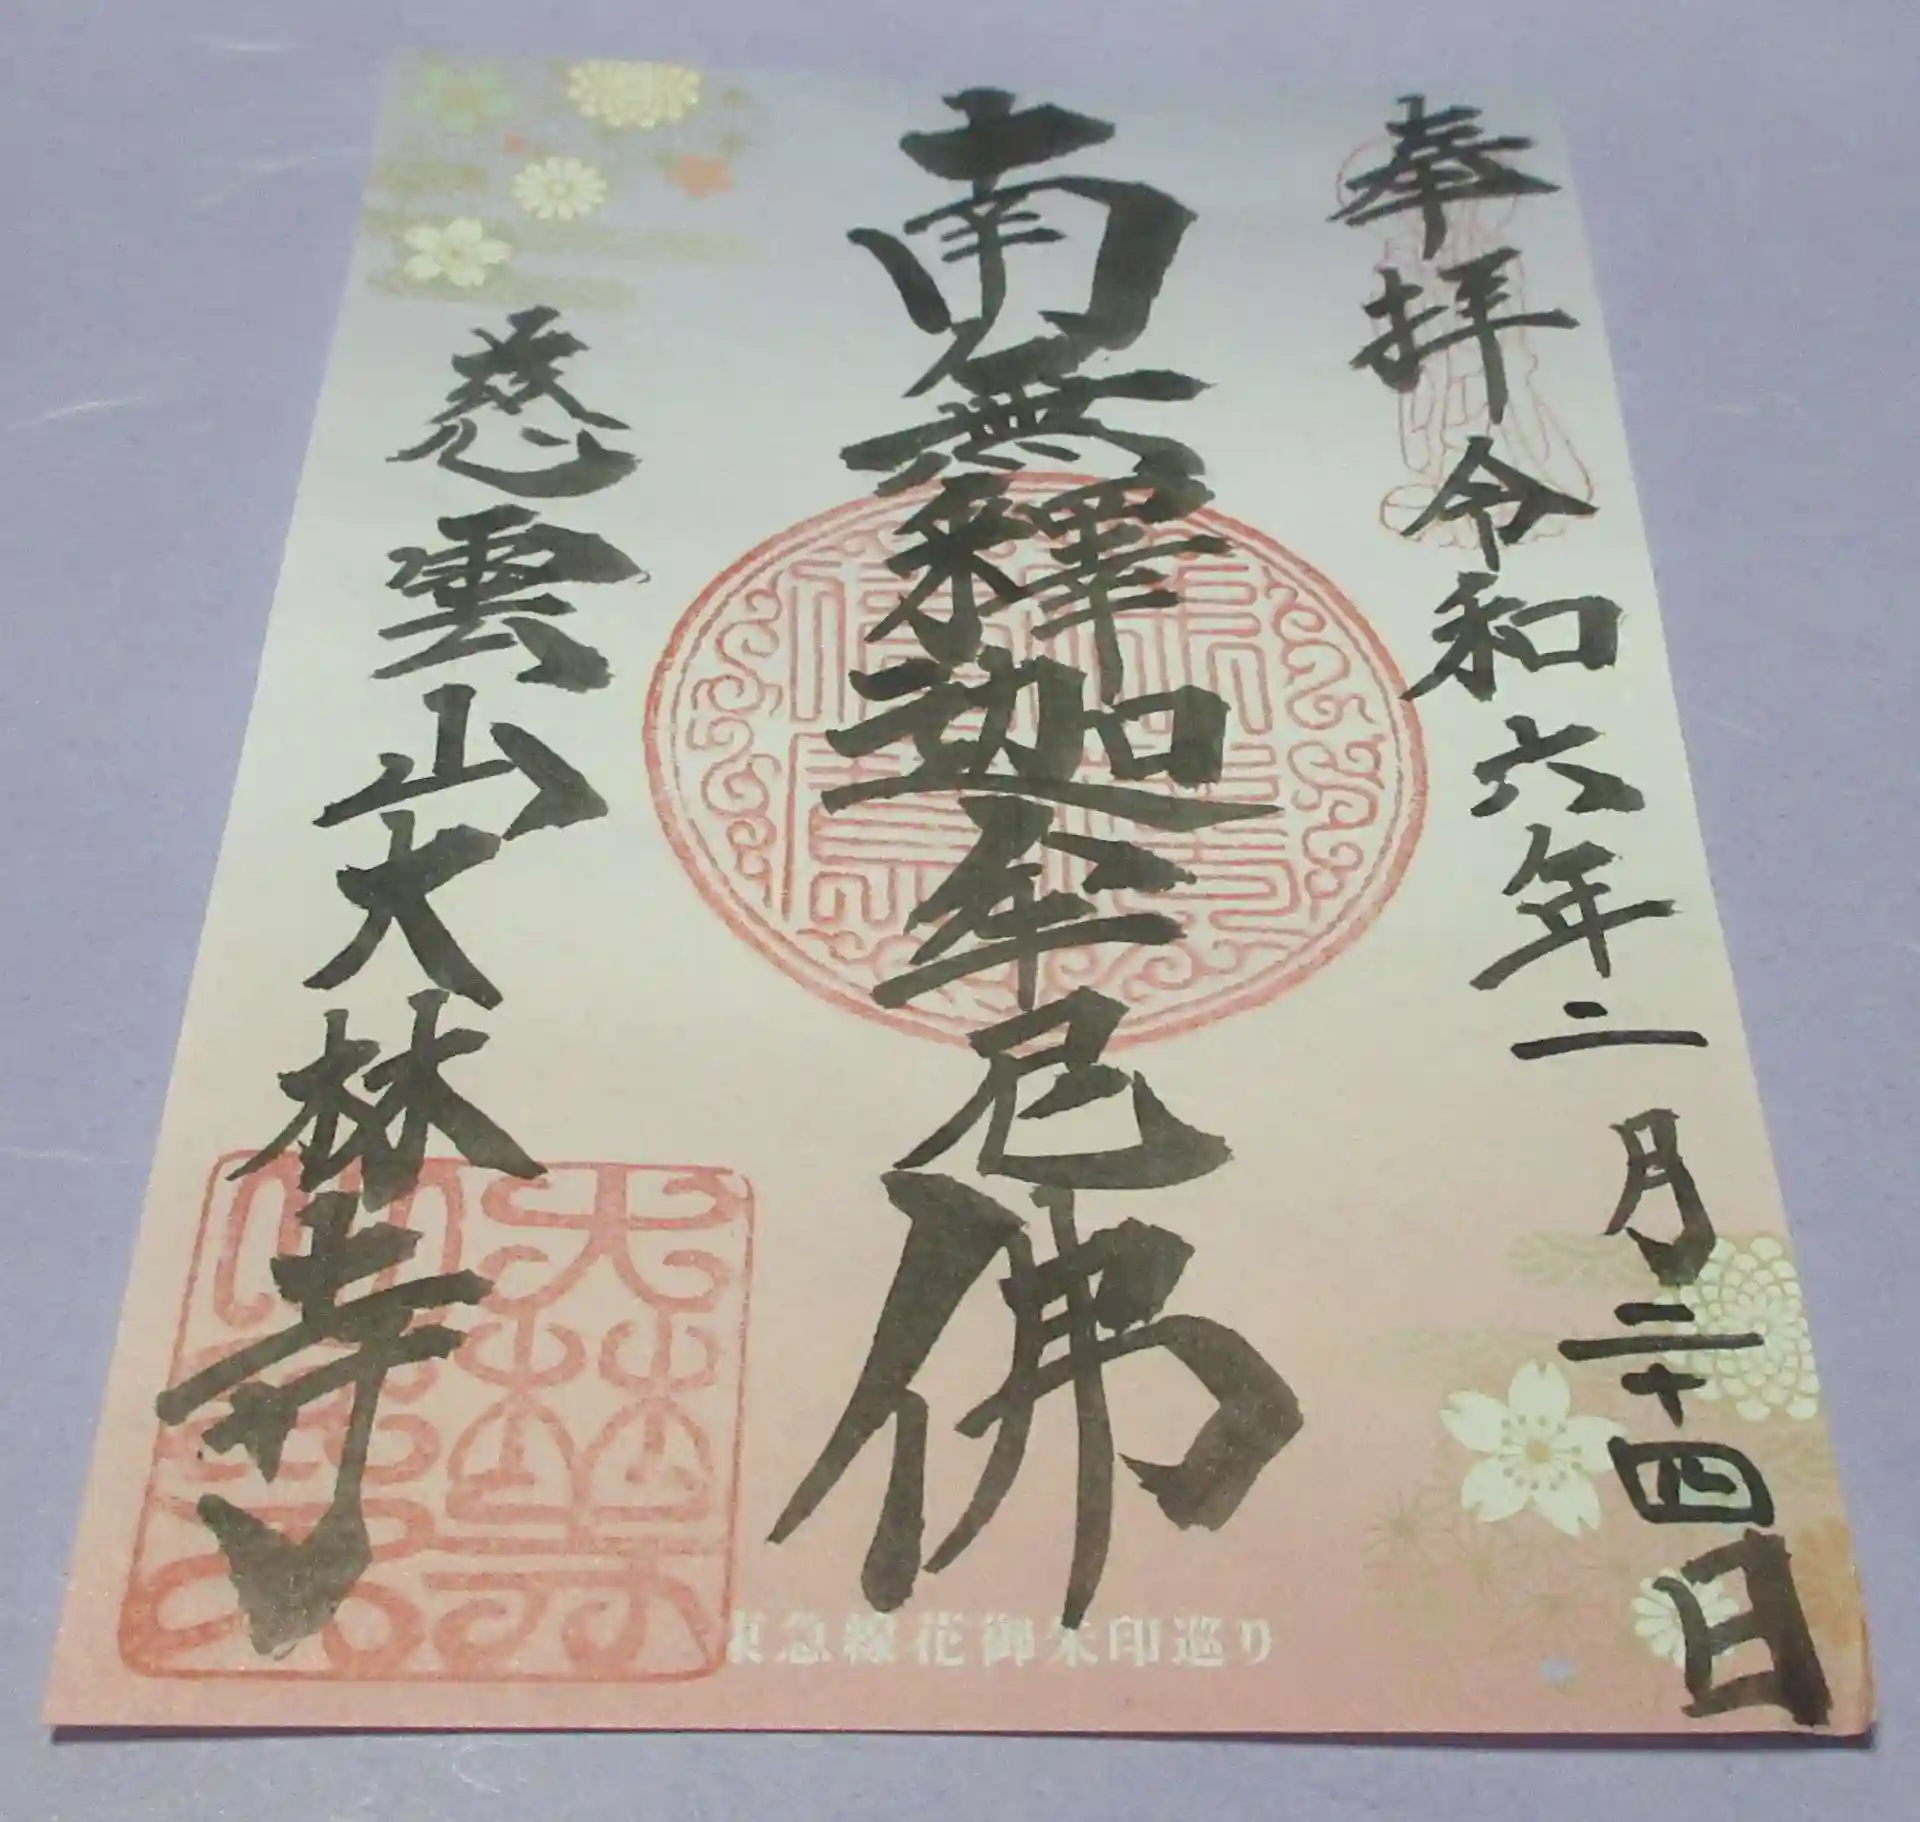 奉拝 令和六年二月二十四日
南無釋迦牟尼佛
慈雲山大林寺
東急線花御朱印巡り